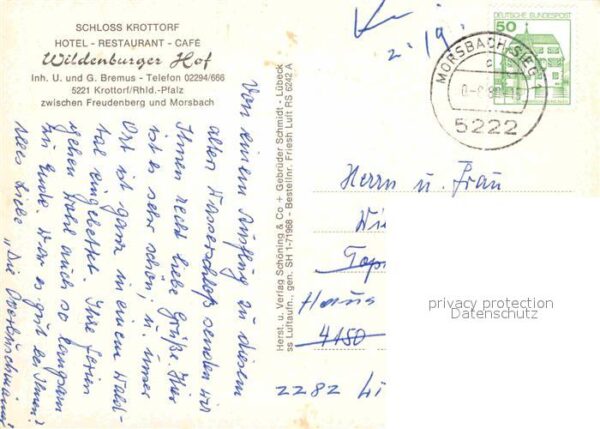 SCHLOSS KROTTORF
HOTEL - RESTAURANT - CAFÉ
Wildenburger Hof
Inh. U. und G. Bremus - Telefon 02294/666
5221 Krottorf/Rhld.-Pfalz
zwischen Freudenberg und Morsbach
Von einem Ausflug zu diesem
alten Wasserschloß senden wir
Ihnen recht liebe Grüße. Hier
ist es sehr schön, u. unser
Ort ist ganz in einem Wald-
tal eingebettet. Ihre Ferien
gehen wohl auch so langsam
zu Ende. War es gut bei Ihnen?
Alles Liebe
„Die
Herst. u. Verlag Schöning & Co + Gebrüder Schmidt - Lübeck
ss Luftaufn., gen. SH 1-71968 - Bestellnr. Friesh Luft RS 6242 A
DEUTSCHE BUNDESPOST
50
MORSBACH, SIEG 1
c
5222
Herrn u. Frau
Haus
4150
2282
privacy protection
Datenschutz